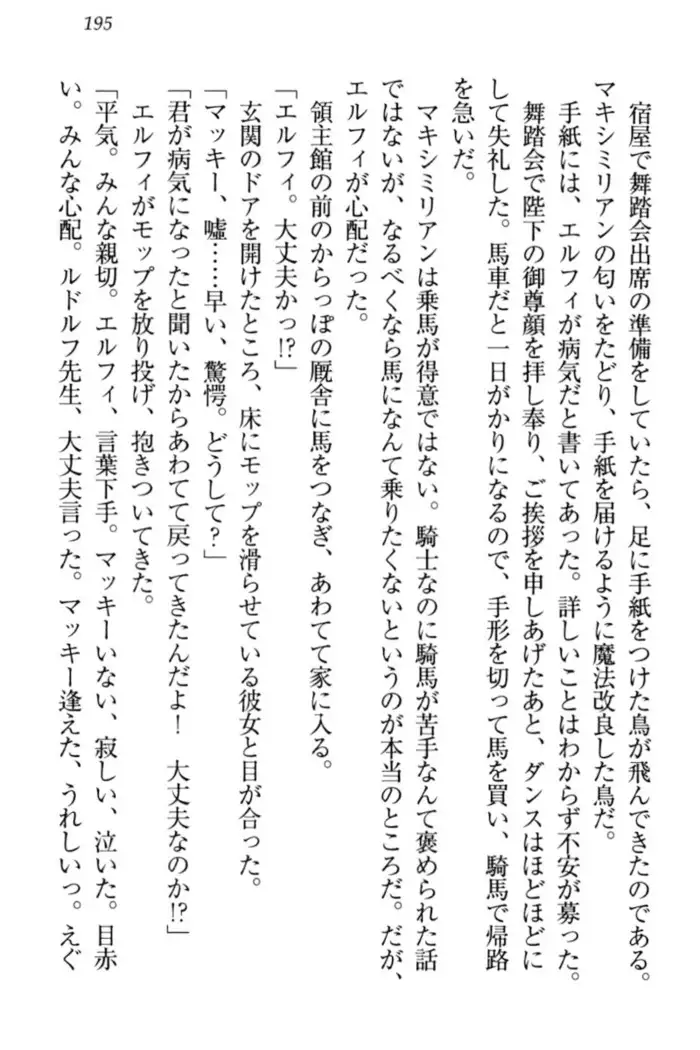 195
宿屋で舞踏会出席の準備をしていたら、足に手紙をつけた鳥が飛んできたのである。
マキシミリアンの匂いをたどり、手紙を届けるように魔法改良した鳥だ。
手紙には、エルフィが病気だと書いてあった。詳しいことはわからず不安が募った。
舞踏会で陛下の御尊顔を拝し奉り、ご挨拶を申しあげたあと、ダンスはほどほどに
して失礼した。馬車だと一日がかりになるので、手形を切って馬を買い、騎馬で帰路
を急いだ。
マキシミリアンは乗馬が得意ではない。騎士なのに騎馬が苦手なんて褒められた話
ではないが、なるべくなら馬になんて乗りたくないというのが本当のところだ。だが、
エルフィが心配だった。
領主館の前のからっぽの厩舎に馬をつなぎ、あわてて家に入る。
「エルフィ。大丈夫かっ!?」
玄関のドアを開けたところ、床にモップを滑らせている彼女と目が合った。
「マッキー、嘘……早い、驚愕。どうして？」
「君が病気になったと聞いたからあわてて戻ってきたんだよ！　大丈夫なのか!?」
エルフィがモップを放り投げ、抱きついてきた。
「平気。みんな親切。エルフィ、言葉下手。マッキーいない、寂しい、泣いた。目赤
い。みんな心配。ルドルフ先生、大丈夫言った。マッキー逢えた、うれしいっ。えぐ